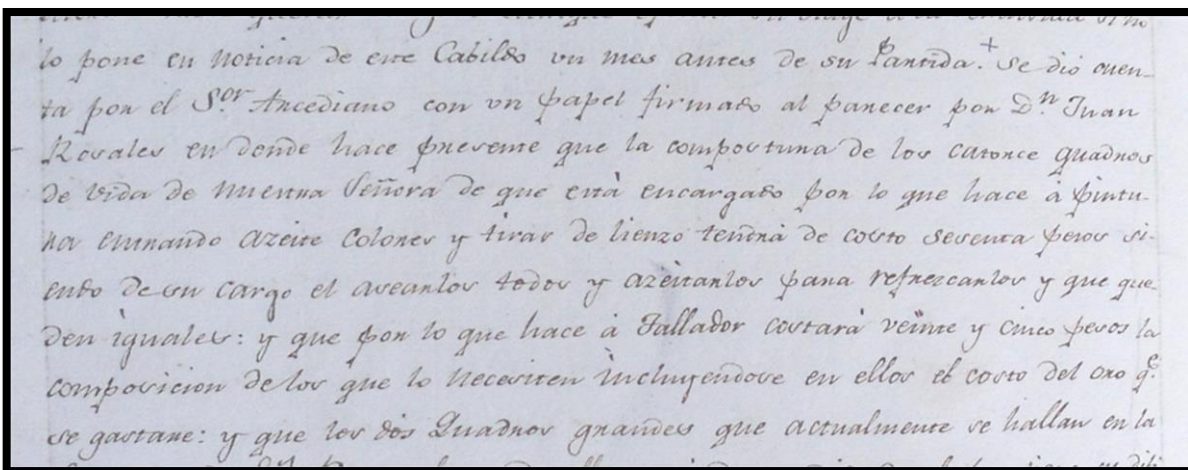 lo pone en noticia de este Cabildo un mes antes de su Partida. + Se dió cuen-
ta por el S.or Arcediano con un papel firmado al parecer por D.n Juan
Rosales en donde hace presente que la compostura de los catorce quadros
de vida de nuestra Señora de que está encargado por lo que hace à pintu-
ra entrando azeite colores y tiras de lienzo tendrá de costo sesenta pesos si-
endo de su cargo el asearlos todos y azeitarlos para refrezcarlos y que que-
den iguales: y que por lo que hace à Tallador costará veinte y cinco pesos la
composicion de los que lo necesiten incluyendose en ellos el costo del oro q.e
se gastare: y que los dós Quadros grandes que actualmente se hallan en la